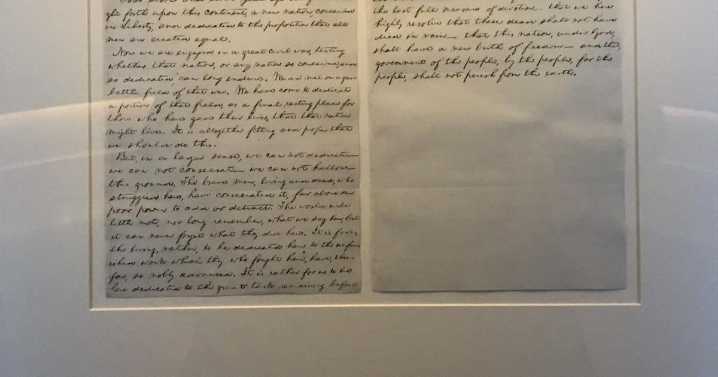 ght forth upon this continent, a new nation, conceived
in Liberty, and dedicated to the proposition that all
men are created equal.
Now we are engaged in a great civil war, testing
whether that nation, or any nation so conceived, and
so dedicated can long endure. We are met on a great
battle field of that war. We have come to dedicate
a portion of that field, as a final resting place for
those who here gave their lives, that that nation
might live. It is altogether fitting and proper that
we should do this.
But, in a larger sense, we can not dedicate—
we can not consecrate— we can not hallow
this ground. The brave men, living and dead, who
struggled here, have consecrated it, far above our
poor power to add or detract. The world will
little note, nor long remember, what we say here, but
it can never forget what they did here. It is for us
the living, rather, to be dedicated here to the unfin
ished work which they who fought here, have, thus
far, so nobly advanced. It is rather for us to be
here dedicated to the great task remaining before
the last full measure of devotion— that we here
highly resolve that these dead shall not have
died in vain— that this nation, under God,
shall have a new birth of freedom— and that,
government of the people, by the people, for the
people, shall not perish from the earth.